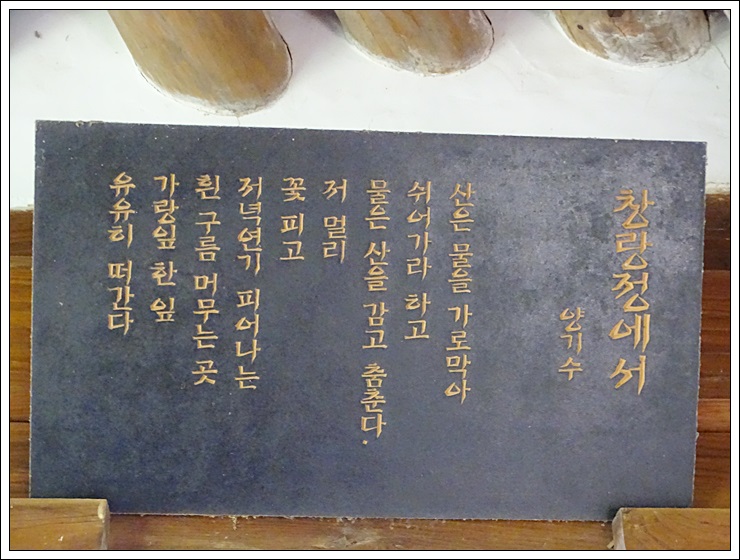 창랑정에서
양기수
산은 물을 가로막아
쉬어가라 하고
물은 산을 감고 춤춘다.
저 멀리
꽃 피고
저녁연기 피어나는
흰 구름 머무는 곳
가랑잎 한 잎
유유히 떠간다